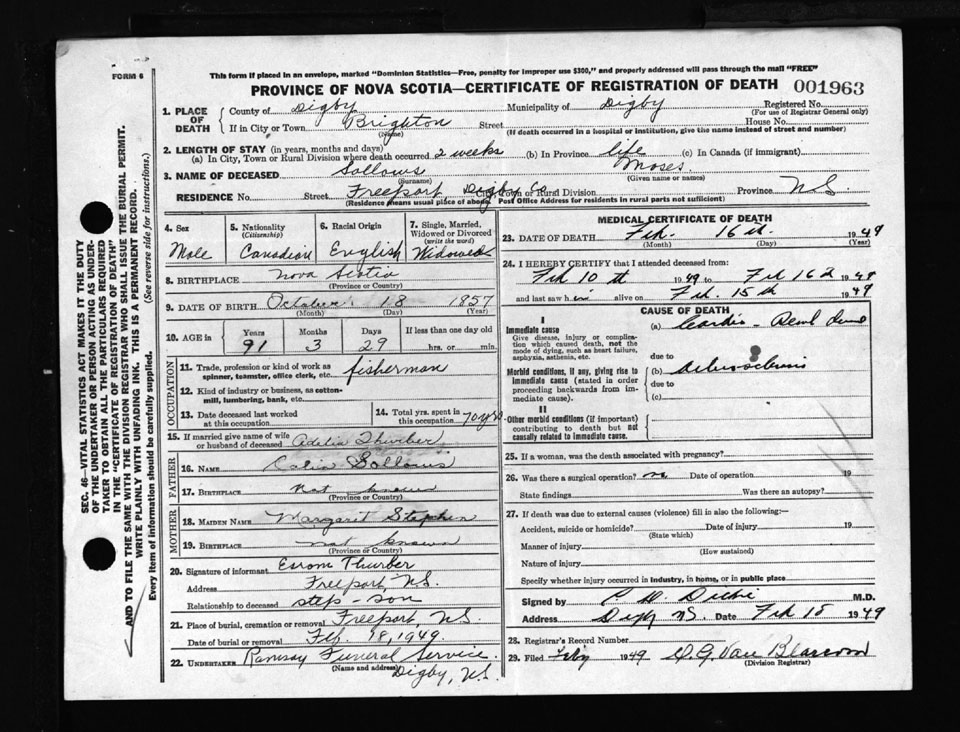 FORM 6
This form if placed in an envelope, marked "Dominion Statistics—Free, penalty for improper use $300," and properly addressed will pass through the mail "FREE"
PROVINCE OF NOVA SCOTIA—CERTIFICATE OF REGISTRATION OF DEATH 001963
SEC. 46—VITAL STATISTICS ACT MAKES IT THE DUTY
OF THE UNDERTAKER OR PERSON ACTING AS UNDER-
TAKER TO OBTAIN ALL THE PARTICULARS REQUIRED
IN THE "CERTIFICATE OF REGISTRATION OF DEATH"
AND TO FILE THE SAME WITH THE DIVISION REGISTRAR WHO SHALL ISSUE THE BURIAL PERMIT.
WRITE PLAINLY WITH UNFADING INK. THIS IS A PERMANENT RECORD.
Every item of information should be carefully supplied. (See reverse side for instructions.)
1. PLACE OF DEATH
County of Digby Municipality of Digby Registered No.
(For use of Registrar General only)
If in City or Town Brighton Street House No.
(Name) (If death occurred in a hospital or institution, give the name instead of street and number)
2. LENGTH OF STAY (in years, months and days)
(a) In City, Town or Rural Division where death occurred 2 weeks (b) In Province life (c) In Canada (if immigrant)
3. NAME OF DECEASED Sollows Moses
(Surname) (Given name or names)
RESIDENCE No. Street Freeport Digby Co Town or Rural Division Province NS
(Residence means usual place of abode. Post Office Address for residents in rural parts not sufficient)
4. Sex Male
5. Nationality (Citizenship) Canadian
6. Racial Origin English
7. Single, Married, Widowed or Divorced (write the word) Widowed
8. BIRTHPLACE Nova Scotia
(Province or Country)
9. DATE OF BIRTH October 18 1857
(Month) (Day) (Year)
10. AGE in Years 91 Months 3 Days 29 If less than one day old hrs. or min.
OCCUPATION
11. Trade, profession or kind of work as spinner, teamster, office clerk, etc. fisherman
12. Kind of industry or business, as cotton-mill, lumbering, bank, etc.
13. Date deceased last worked at this occupation
14. Total yrs. spent in this occupation 70 yrs
15. If married give name of wife or husband of deceased Adelia Thurber
FATHER
16. Name Calvin Sollows
17. Birthplace Not known
(Province or Country)
MOTHER
18. Maiden Name Margaret Stephen
19. Birthplace not known
(Province or Country)
20. Signature of informant Esrom Thurber
Address Freeport, N.S.
Relationship to deceased step-son
21. Place of burial, cremation or removal Freeport, N.S.
Date of burial or removal Feb. 18, 1949.
22. UNDERTAKER Ramsay Funeral Service.
(Name and address) Digby, N.S.
MEDICAL CERTIFICATE OF DEATH
23. DATE OF DEATH Feb. 16th 1949
(Month) (Day) (Year)
24. I HEREBY CERTIFY that I attended deceased from:
Feb 10th 1949 to Feb 16 1949
and last saw him alive on Feb. 15th 1949
CAUSE OF DEATH
I
Immediate cause
Give disease, injury or complication which caused death, not the mode of dying, such as heart failure, asphyxia, asthenia, etc.
(a) Cardio-Renal
due to
Morbid conditions, if any, giving rise to immediate cause (stated in order proceeding backwards from immediate cause).
(b) Arteriosclerosis
due to
(c)
II
Other morbid conditions (if important) contributing to death but not causally related to immediate cause.
25. If a woman, was the death associated with pregnancy?
26. Was there a surgical operation no Date of operation 19
State findings Was there an autopsy?
27. If death was due to external causes (violence) fill in also the following:—
Accident, suicide or homicide? Date of injury 19
(State which)
Manner of injury
(How sustained)
Nature of injury
Specify whether injury occurred in industry, in home, or in public place
Signed by M.D.
Address Digby NS. Date Feb 18 1949
28. Registrar's Record Number
29. Filed Feby 1949 Van Blarcom
(Division Registrar)